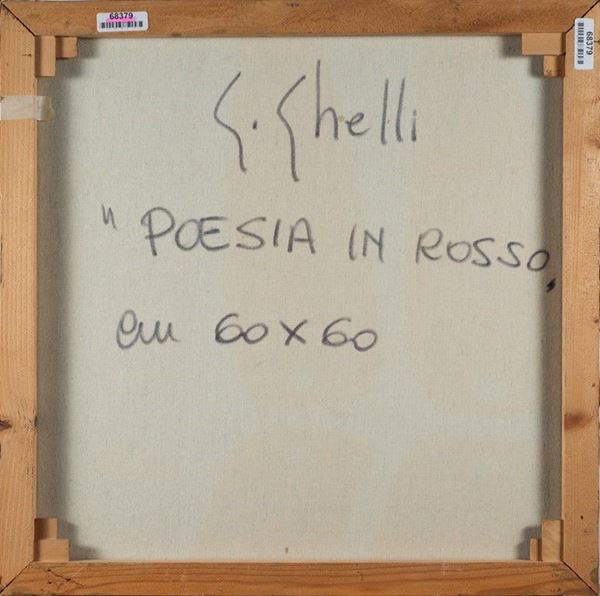 68379
68379
G. Ghelli
" POESIA IN ROSSO,,
cm 60x60